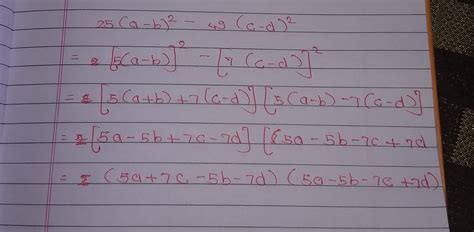 25(a-b)² - 49(c-d)²
= [5(a-b)]² - [7(c-d)]²
= [5(a+b)+7(c-d)] [5(a-b)-7(c-d)]
= [5a-5b+7c-7d] [5a-5b-7c+7d
= (5a+7c-5b-7d) (5a-5b-7c+7d)